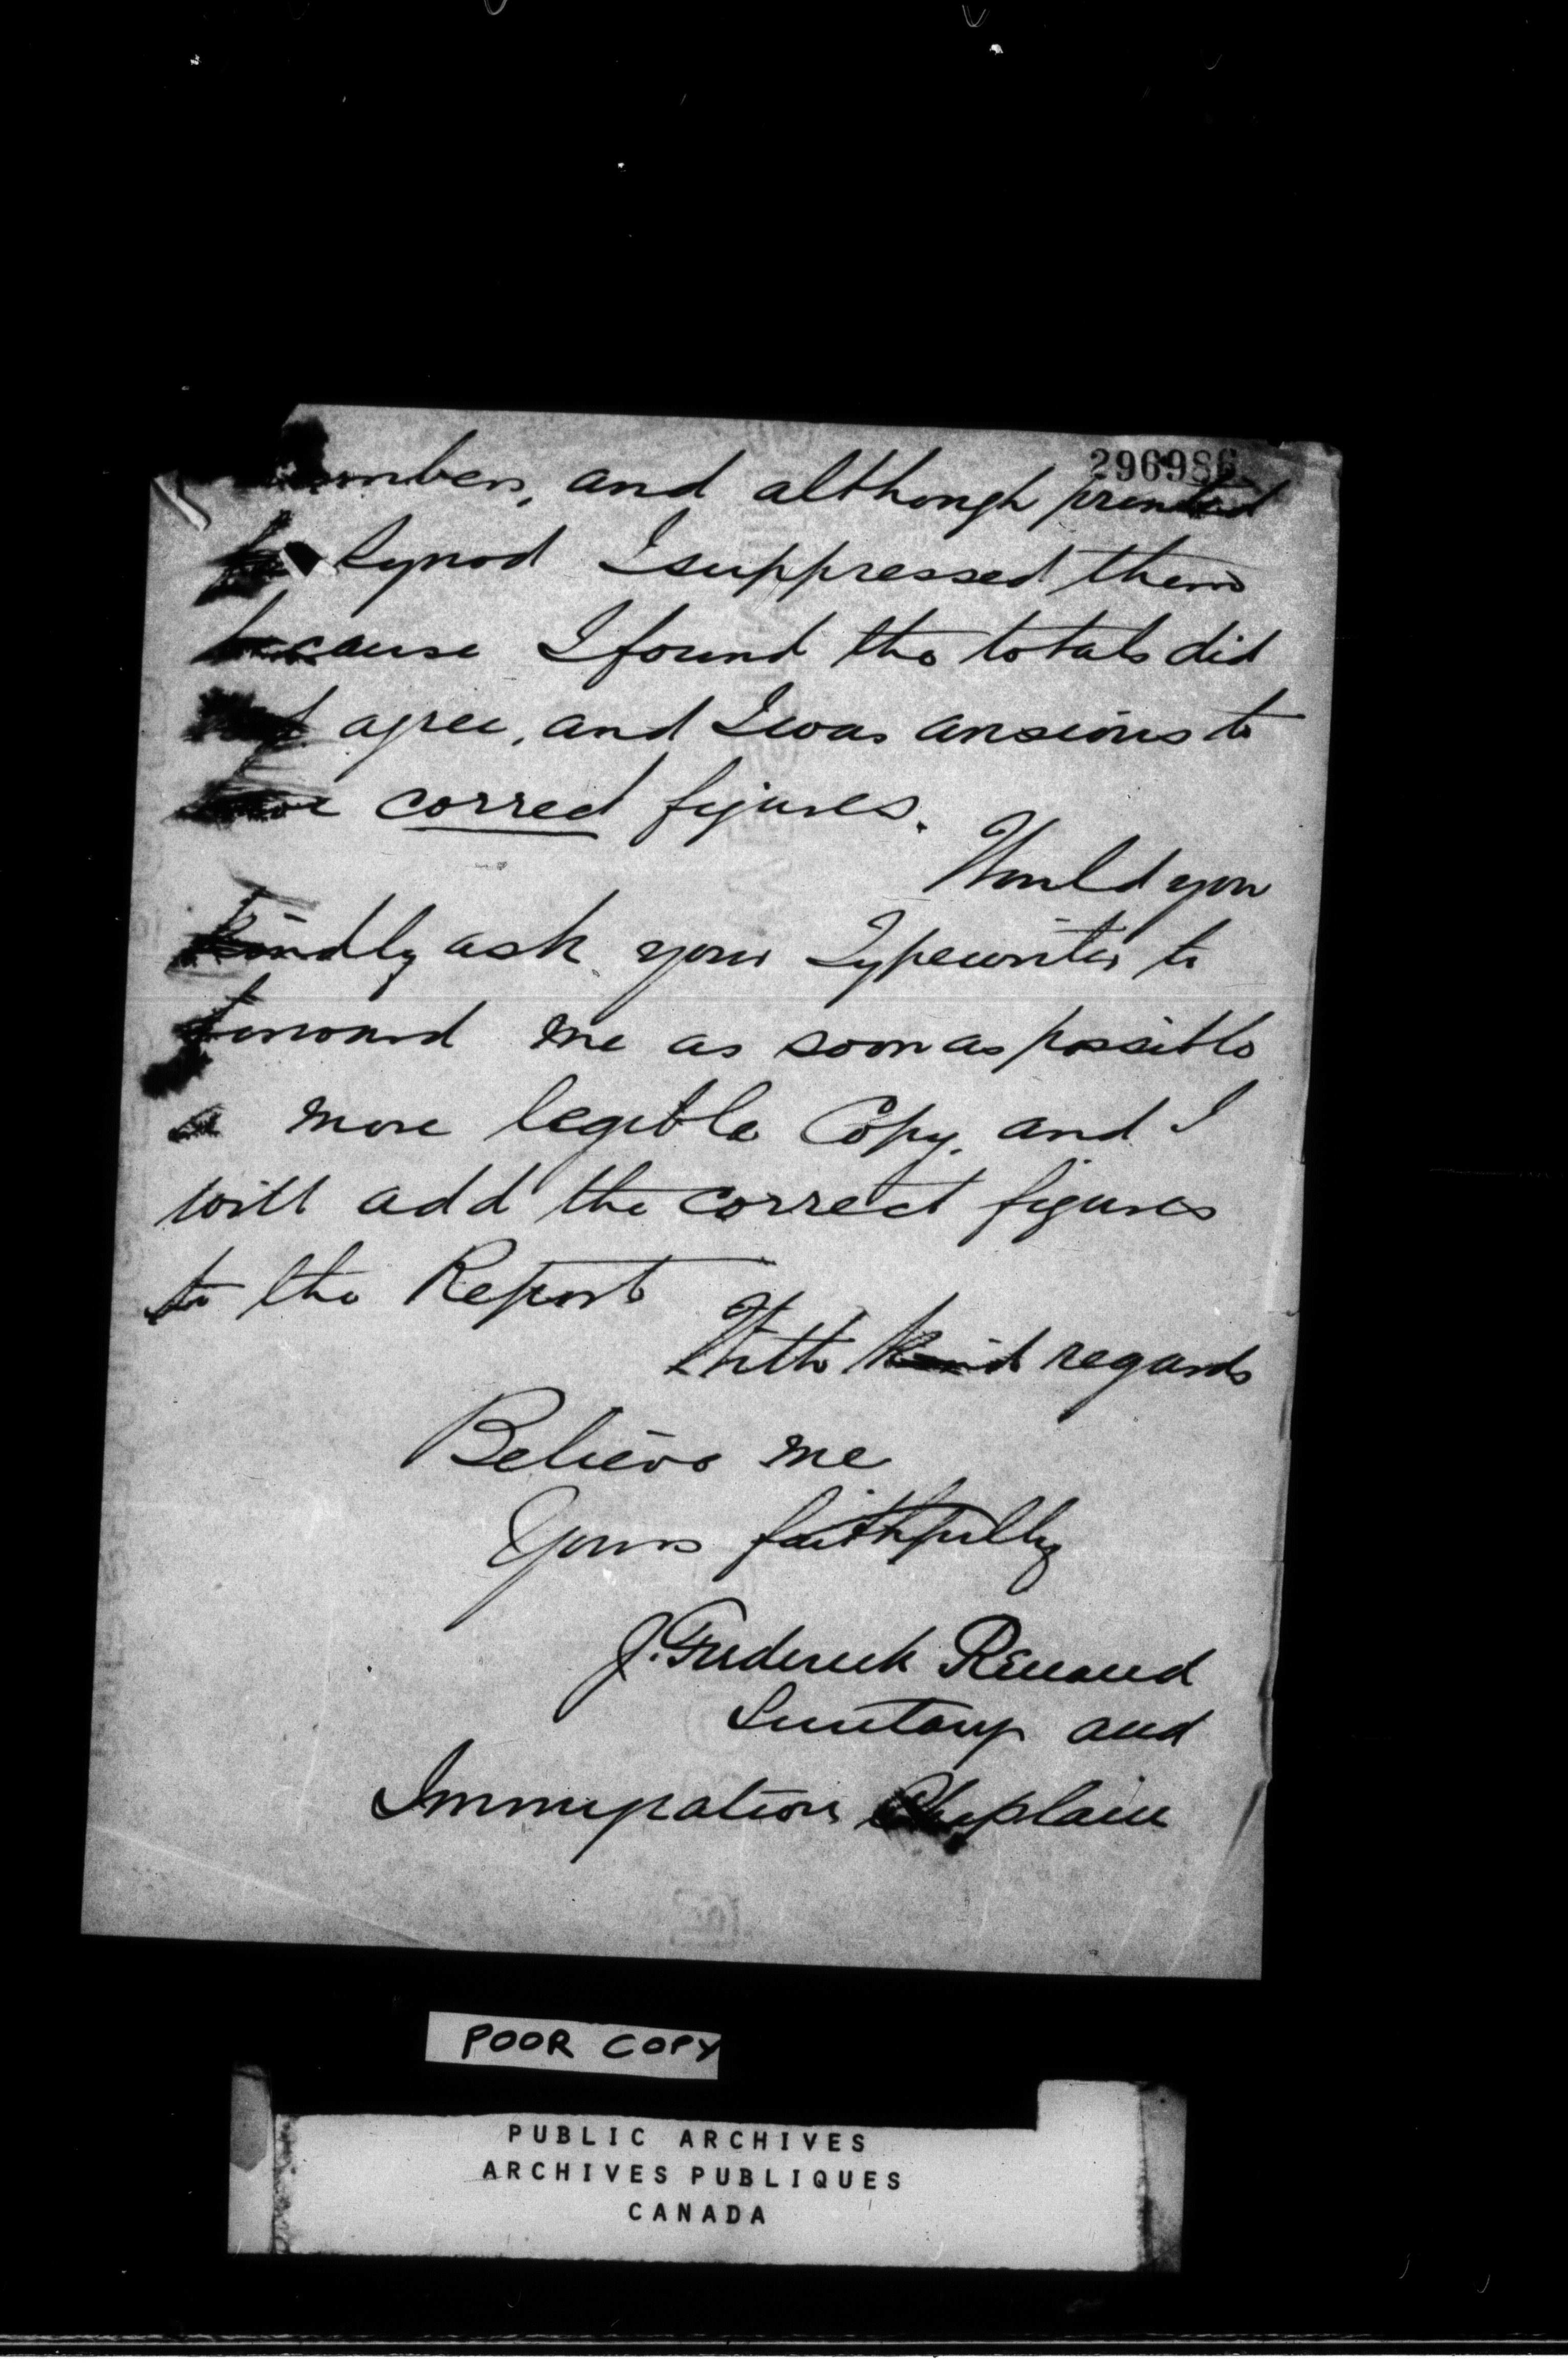 296986
numbers, and although printed
for Synod I suppressed them
because I found the totals did
not agree, and I was anxious to
have correct figures.
Would you
kindly ask your Typewriter to
forward me as soon as possible
a more legible Copy, and I
will add the correct figures
to the Report
With kind regards
Believe me
Yours faithfully
J. Frederick Renaud
Secretary and
Immigration Chaplain
POOR COPY
PUBLIC ARCHIVES
ARCHIVES PUBLIQUES
CANADA